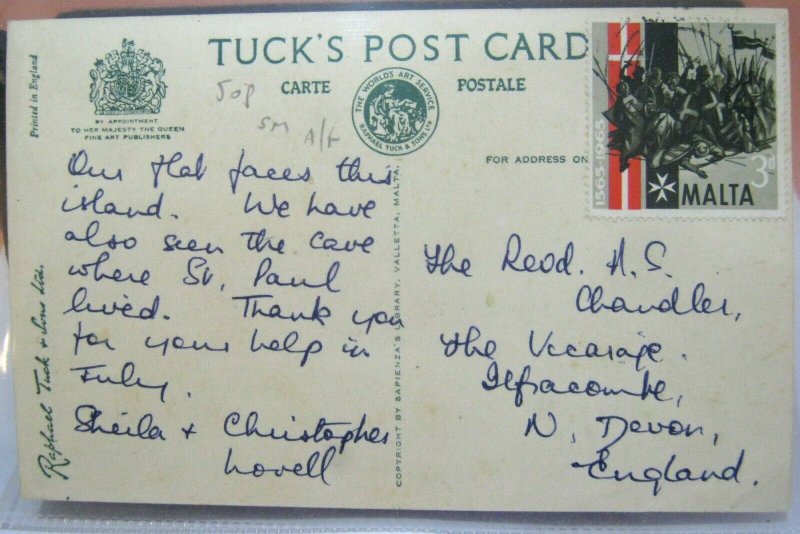 TUCK'S POST CARD
CARTE POSTALE
BY APPOINTMENT
TO HER MAJESTY THE QUEEN
FINE ART PUBLISHERS
Printed in England
THE WORLD'S ART SERVICE
RAPHAEL TUCK & SONS LTD
50p
SM A/F
FOR ADDRESS ON
1565-1965
MALTA
3d
Our flat faces this
island. We have
also seen the cave
where St. Paul
lived. Thank you
for your help in
July.
Sheila + Christopher
Lovell
Raphael Tuck & Sons Ltd.
COPYRIGHT BY SAPIENZA'S LIBRARY, VALLETTA, MALTA.
The Revd. H. S.
Chandler,
The Vicarage.
Ilfracombe,
N. Devon,
England.